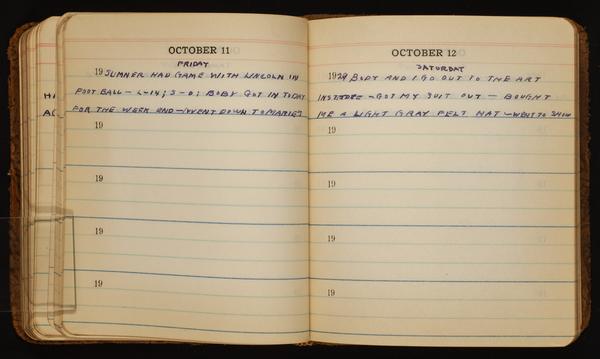 OCTOBER 11
FRIDAY
19 SUMNER HAD GAME WITH LINCOLN IN
FOOT BALL - L-14; S-0; BOBY GOT IN TODAY
FOR THE WEEK END - WENT DOWN TO MARIE'S
19
19
19
19
OCTOBER 12
SATURDAY
1929 BOBY AND I GO OUT TO THE ART
INSTITUTE - GOT MY SUIT OUT - BOUGHT
ME A LIGHT GRAY FELT HAT - WENT TO SHOW
19
19
19
19